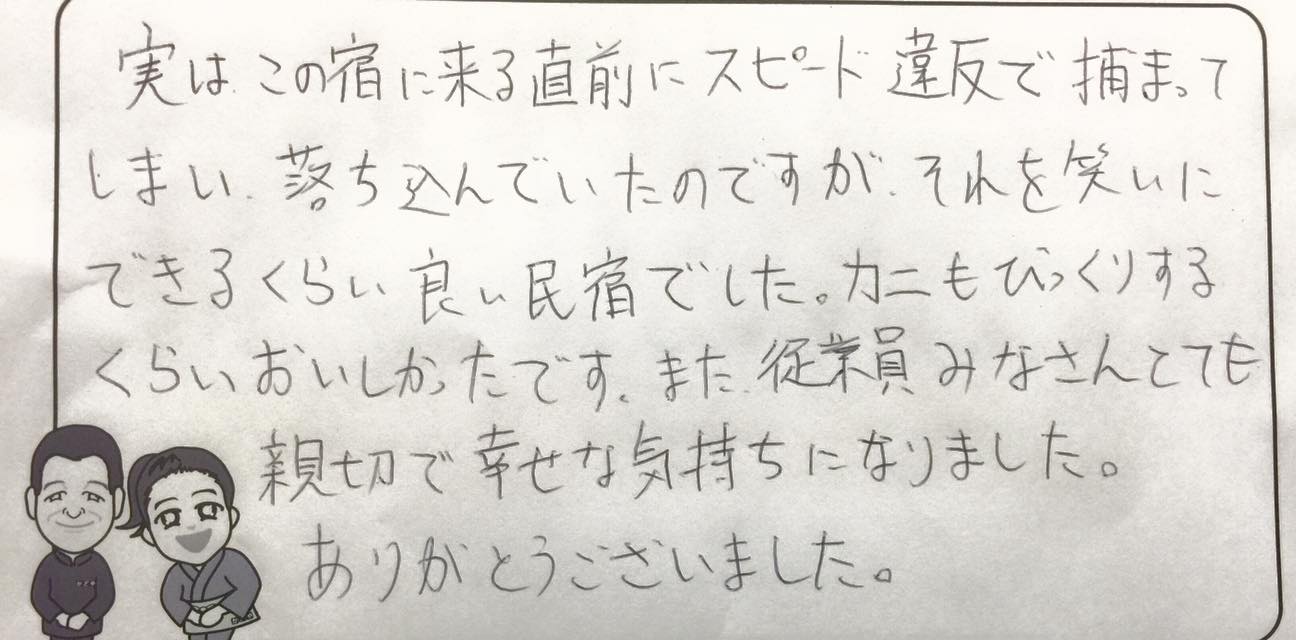 実はこの宿に来る直前にスピード違反で捕まって
しまい、落ち込んでいたのですが、それを笑いに
できるくらい良い民宿でした。カニもびっくりする
くらいおいしかったです。また、従業員みなさんとても
親切で幸せな気持ちになりました。
ありがとうございました。